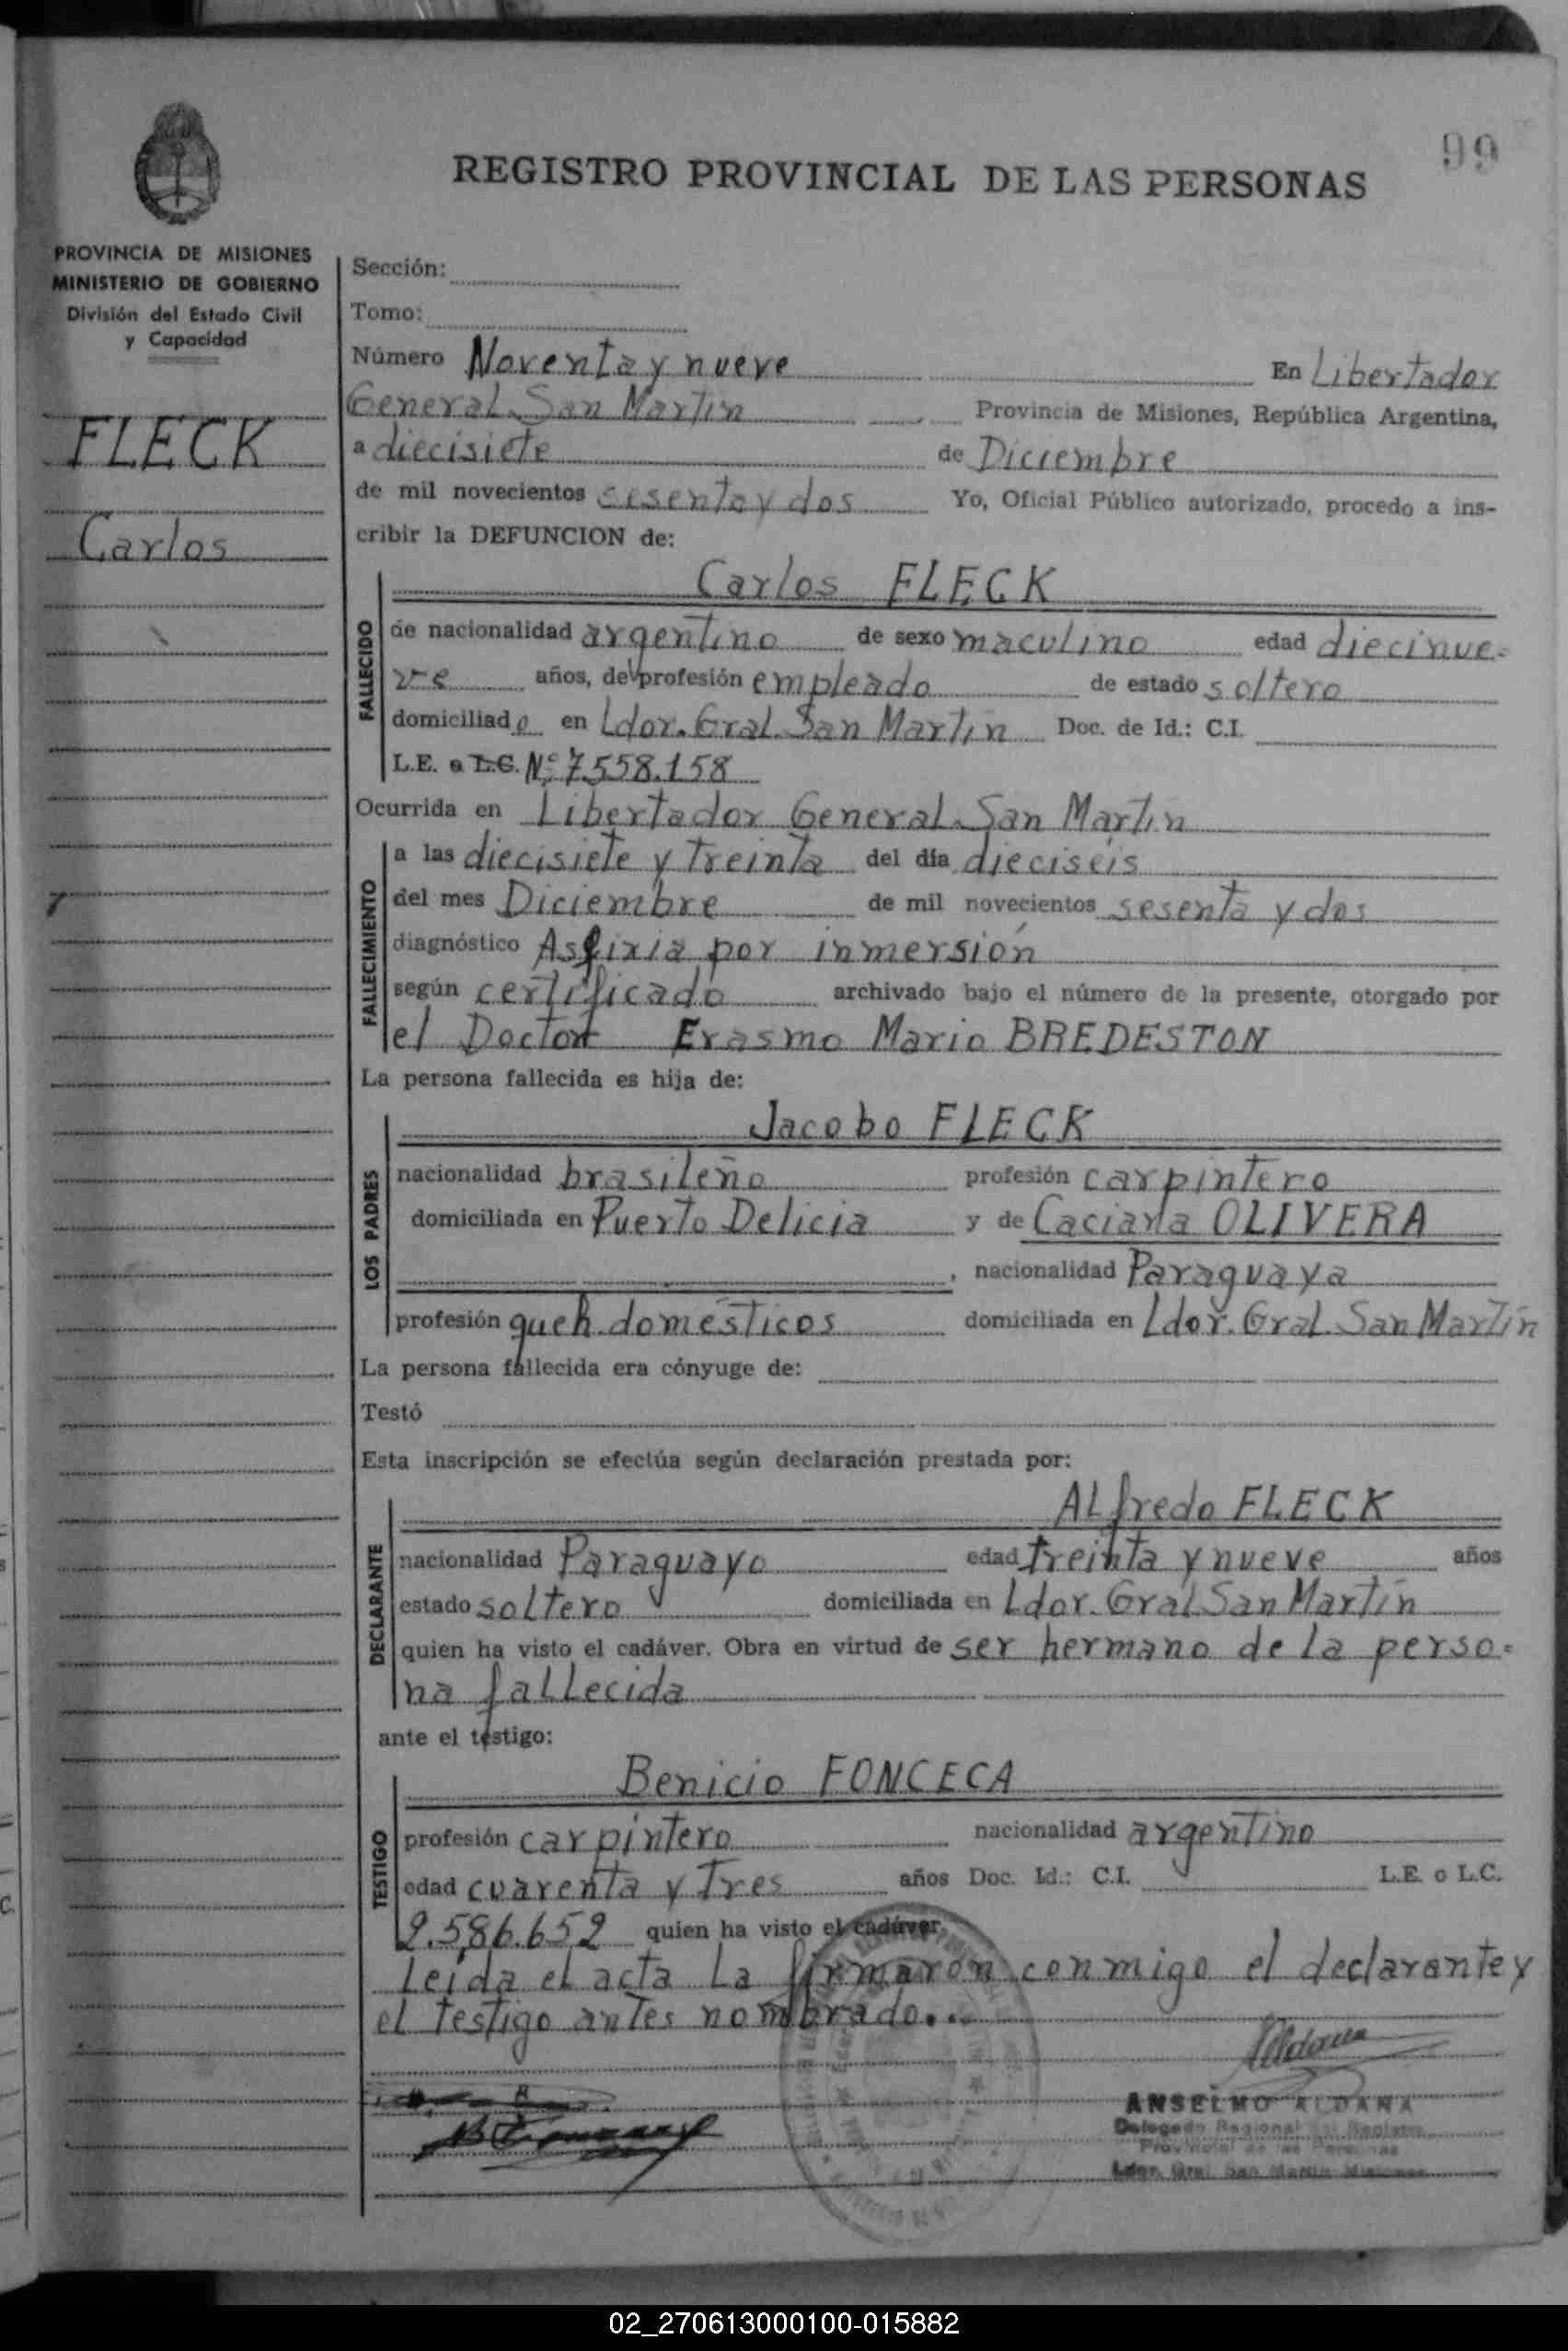 99
REGISTRO PROVINCIAL DE LAS PERSONAS
PROVINCIA DE MISIONES
MINISTERIO DE GOBIERNO
División del Estado Civil
y Capacidad
FLECK
Carlos
Sección:
Tomo:
Número Noventa y nueve En Libertador
General San Martin Provincia de Misiones, República Argentina,
a diecisiete de Diciembre
de mil novecientos sesenta y dos Yo, Oficial Público autorizado, procedo a ins-
cribir la DEFUNCION de:
FALLECIDO
Carlos FLECK
de nacionalidad argentino de sexo maculino edad diecinue-
ve años, de profesión empleado de estado soltero
domiciliado en Ldor. Gral. San Martín Doc. de Id.: C.I.
L.E. o L.C. Nº 7.558.158
Ocurrida en Libertador General San Martín
FALLECIMIENTO
a las diecisiete y treinta del día dieciseis
del mes Diciembre de mil novecientos sesenta y dos
diagnóstico Asfixia por inmersión
según certificado archivado bajo el número de la presente, otorgado por
el Doctor Erasmo Mario BREDESTON
La persona fallecida es hija de:
LOS PADRES
Jacobo FLECK
nacionalidad brasileño profesión carpintero
domiciliada en Puerto Delicia y de Caciana OLIVERA
, nacionalidad Paraguaya
profesión queh. domésticos domiciliada en Ldor. Gral. San Martín
La persona fallecida era cónyuge de:
Testó
Esta inscripción se efectúa según declaración prestada por:
DECLARANTE
ALfredo FLECK
nacionalidad Paraguayo edad treinta y nueve años
estado soltero domiciliada en Ldor. Gral San Martín
quien ha visto el cadáver. Obra en virtud de ser hermano de la perso-
na fallecida
ante el testigo:
TESTIGO
Benicio FONCECA
profesión carpintero nacionalidad argentino
edad cuarenta y tres años Doc. Id.: C.I. L.E. o L.C.
2.586.652 quien ha visto el cadáver.
Leída el acta la firmaron conmigo el declarante y
el testigo antes nombrado...
Aldana
ANSELMO ALDANA
Delegado Regional del Registro
Provincial de las Personas
Ldor. Gral. San Martín Misiones
02_270613000100-015882